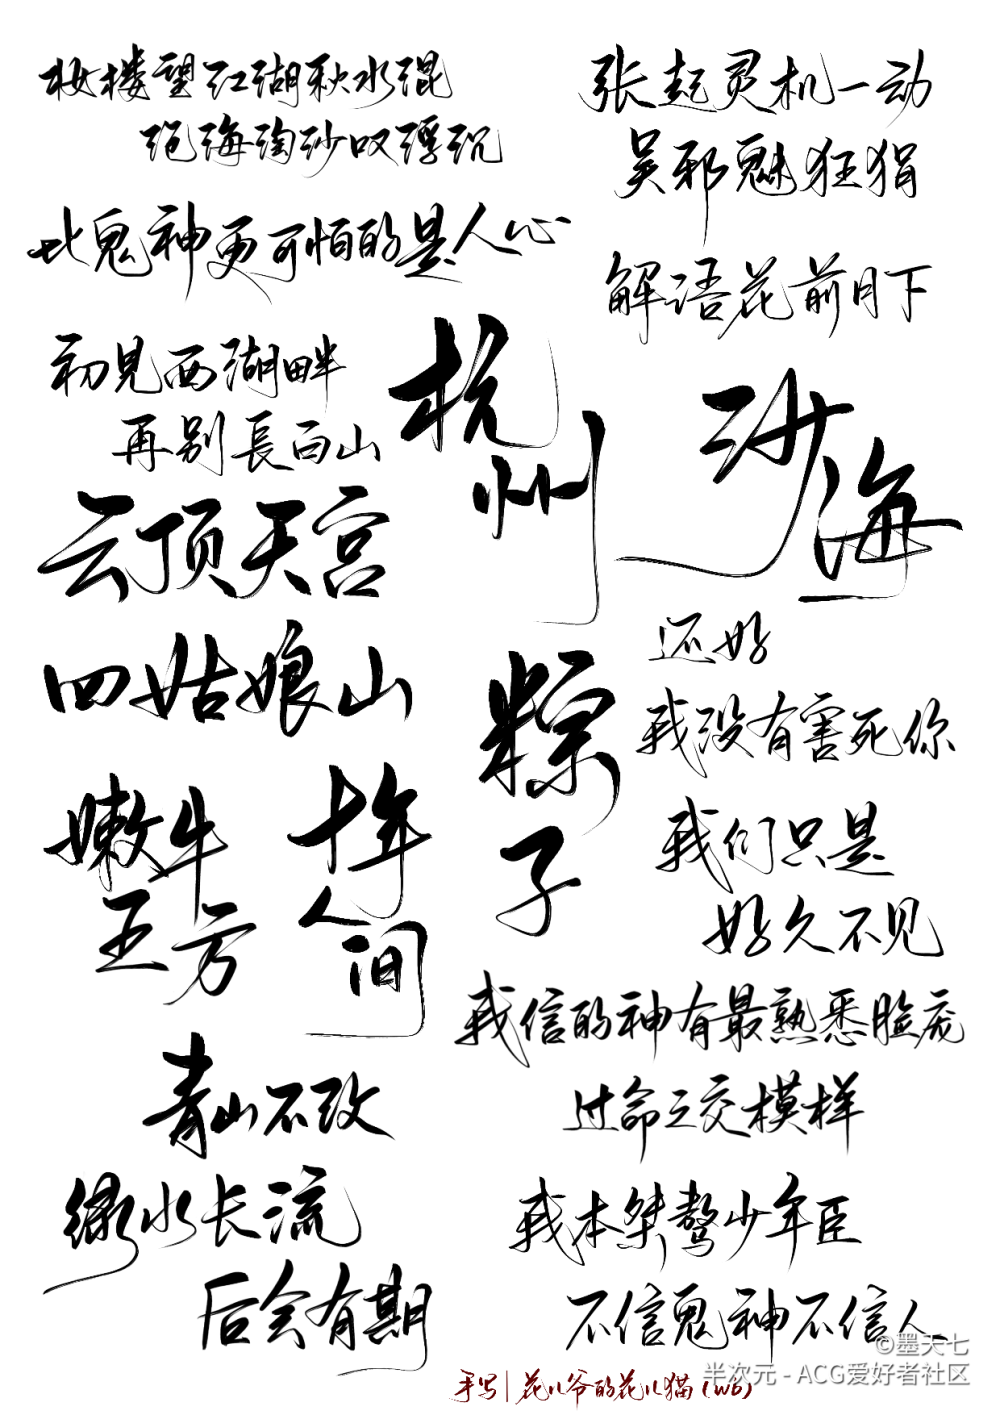 妆楼望江湖秋水混
沧海淘沙叹浮沉
比鬼神更可怕的是人心
初見西湖畔
再别長白山
云顶天宫
四姑娘山
嫩牛
五方
十年
人间
青山不改
绿水长流
后会有期
张起灵机一动
吴邪魅狂狷
解语花前月下
杭
州
沙
海
粽
子
还好
我没有害死你
我们只是
好久不见
我信的神有最熟悉脸庞
过命之交模样
我本桀骜少年臣
不信鬼神不信人
手写|花儿爷的花儿猫(wb)
©墨天七
半次元 - ACG爱好者社区